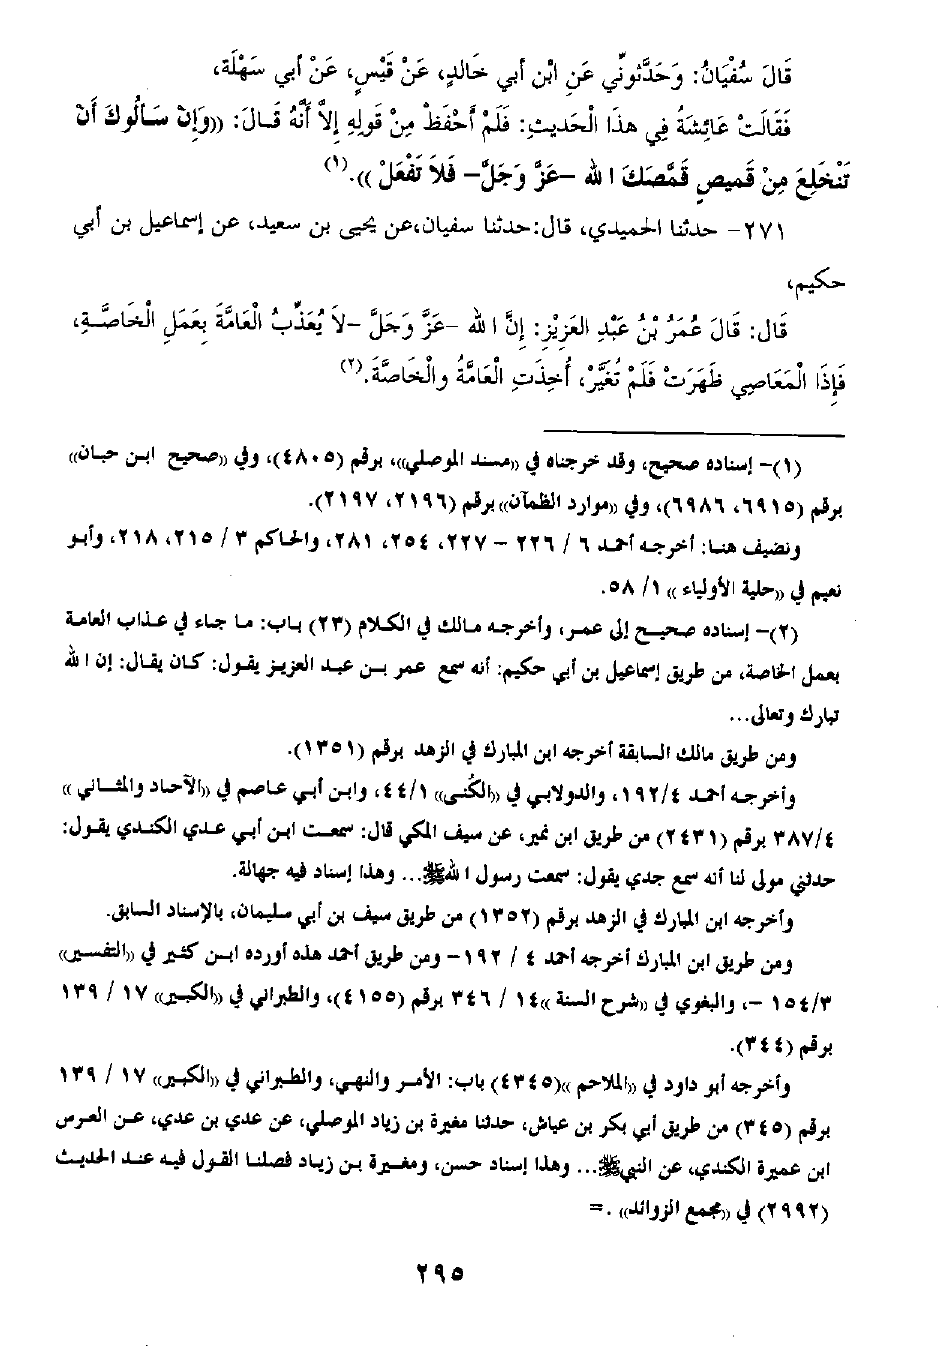 قَالَ سُفْيَانُ: وَحَدَّثُونِّي عَنِ ابْنِ أبي خَالدٍ، عَنْ قَيْسٍ، عَنْ أبي سَهْلَة،
فَقَالَتْ عَائِشَةُ فِي هذَا الْحَديثِ: فَلَمْ أحْفَظْ مِنْ قولِهِ إلاَّ أنَّهُ قَالَ: ((وَإِنْ سَأَلُوكَ أَنْ
تَنْخَلِعَ مِنْ قَمِيصٍ قَمَّصَكَ الله -عَزَّ وَجَلَّ- فَلاَ تَفْعَلْ )).(١)
٢٧١- حدثنا الحميدي، قال: حدثنا سفيان، عن يحيى بن سعيد، عن إسماعيل بن أبي
حكيم،
قَال: قَالَ عُمَرُ بْنُ عَبْدِ العَزِيزِ: إِنَّ الله -عَزَّ وَجَلَّ -لاَ يُعَذِّبُ الْعَامَّةَ بِعَمَلِ الْخَاصَّةِ،
فَإِذَا الْمَعَاصِي ظَهَرَتْ فَلَمْ تُغَيَّرْ، أُخِذَتِ الْعَامَّةُ والْخَاصَّةَ.(٢)
(١)- إسناده صحيح، وقد خرجناه في ((مسند الموصلي))، برقم (٤٨٠٥)، وفي ((صحيح ابن حبان))
برقم (٦٩١٥، ٦٩٨٦)، وفي ((موارد الظمآن)) برقم (٢١٩٦، ٢١٩٧).
ونضيف هنا: أخرجه أحمد ٦ / ٢٢٦ - ٢٢٧، ٢٥٤، ٢٨١، والحاكم ٣ / ٢١٥، ٢١٨، وأبو
نعيم في ((حلية الأولياء )) ١/ ٥٨.
(٢)- إسناده صحيح إلى عمر، وأخرجه مالك في الكلام (٢٣) باب: ما جاء في عذاب العامة
بعمل الخاصة، من طريق إسماعيل بن أبي حكيم: أنه سمع عمر بن عبد العزيز يقول: كان يقال: إن الله
تبارك وتعالى...
ومن طريق مالك السابقة أخرجه ابن المبارك في الزهد برقم (١٣٥١).
وأخرجه أحمد ١٩٢/٤، والدولابي في ((الكُنى)) ٤٤/١، وابن أبي عاصم في ((الآحاد والمثاني ))
٣٨٧/٤ برقم (٢٤٣١) من طريق ابن نمير، عن سيف المكي قال: سمعت ابن أبي عدي الكندي يقول:
حدثني مولى لنا أنه سمع جدي يقول: سمعت رسول الله ﷺ... وهذا إسناد فيه جهالة.
وأخرجه ابن المبارك في الزهد برقم (١٣٥٢) من طريق سيف بن أبي سليمان، بالإسناد السابق.
ومن طريق ابن المبارك أخرجه أحمد ٤ / ١٩٢- ومن طريق أحمد هذه أورده ابن كثير في ((التفسير))
١٥٤/٣ -، والبغوي في ((شرح السنة ))١٤ / ٣٤٦ برقم (٤١٥٥)، والطبراني في ((الكبير)) ١٧ / ١٣٩
برقم (٣٤٤).
وأخرجه أبو داود في ((الملاحم ))(٤٣٤٥) باب: الأمر والنهي، والطبراني في ((الكبير)) ١٧ / ١٣٩
برقم (٣٤٥) من طريق أبي بكر بن عياش، حدثنا مغيرة بن زياد الموصلي، عن عدي بن عدي، عن العرس
ابن عميرة الكندي، عن النبي ﷺ... وهذا إسناد حسن، ومغيرة بن زياد فصلنا القول فيه عند الحديث
(٢٩٩٢) في ((مجمع الزوائد)) .=
٢٩٥